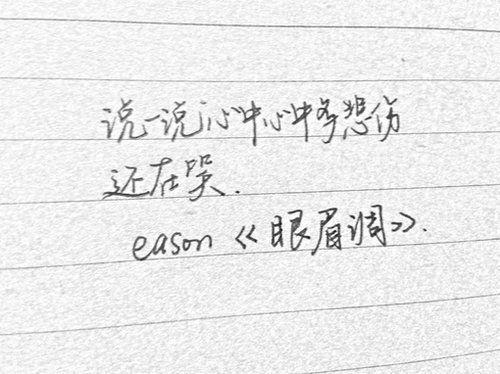 说一说心中心中多悲伤
还在哭.
eason《眼眉调》.